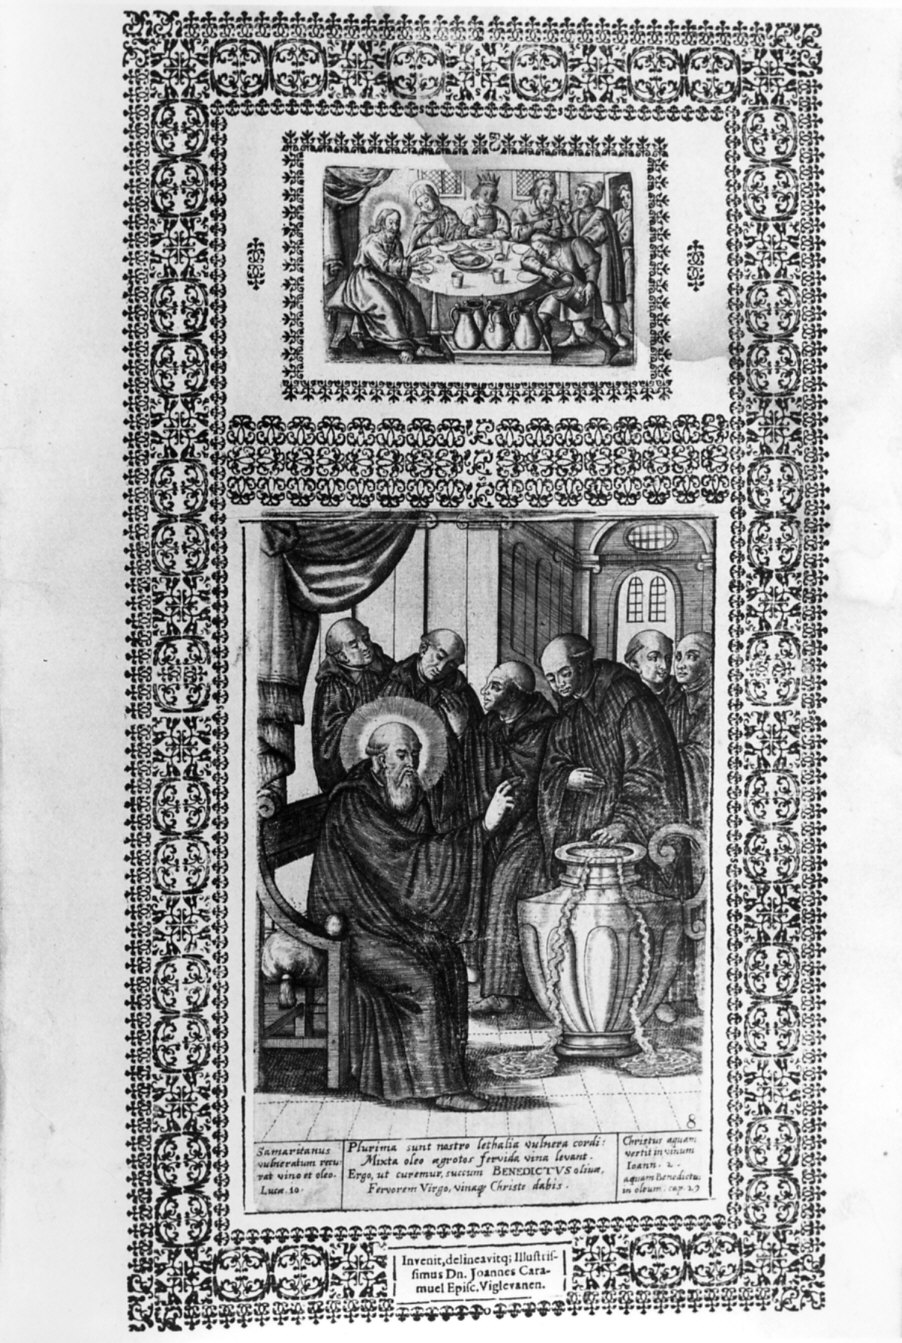 8
Samaritanus
vulneratum recu
rat vino et oleo.
Luca. 10.
Plurima sunt nostro lethalia vulnera cordi:
Mixta oleo ægrotos fervida vina levant.
Ergo, ut curemur, succum BENEDICTVS olivæ,
Fervorem Virgo, vinaq; Christe dabis.
Christus aquam
vertit in vinum
Ioann. 2.
aquam Benedictus
in oleum. cap. 29
Invenit, delineavitq; Illustriſ-
ſimus Dn. Joannes Cara-
muel Epiſc. Viglevanen.